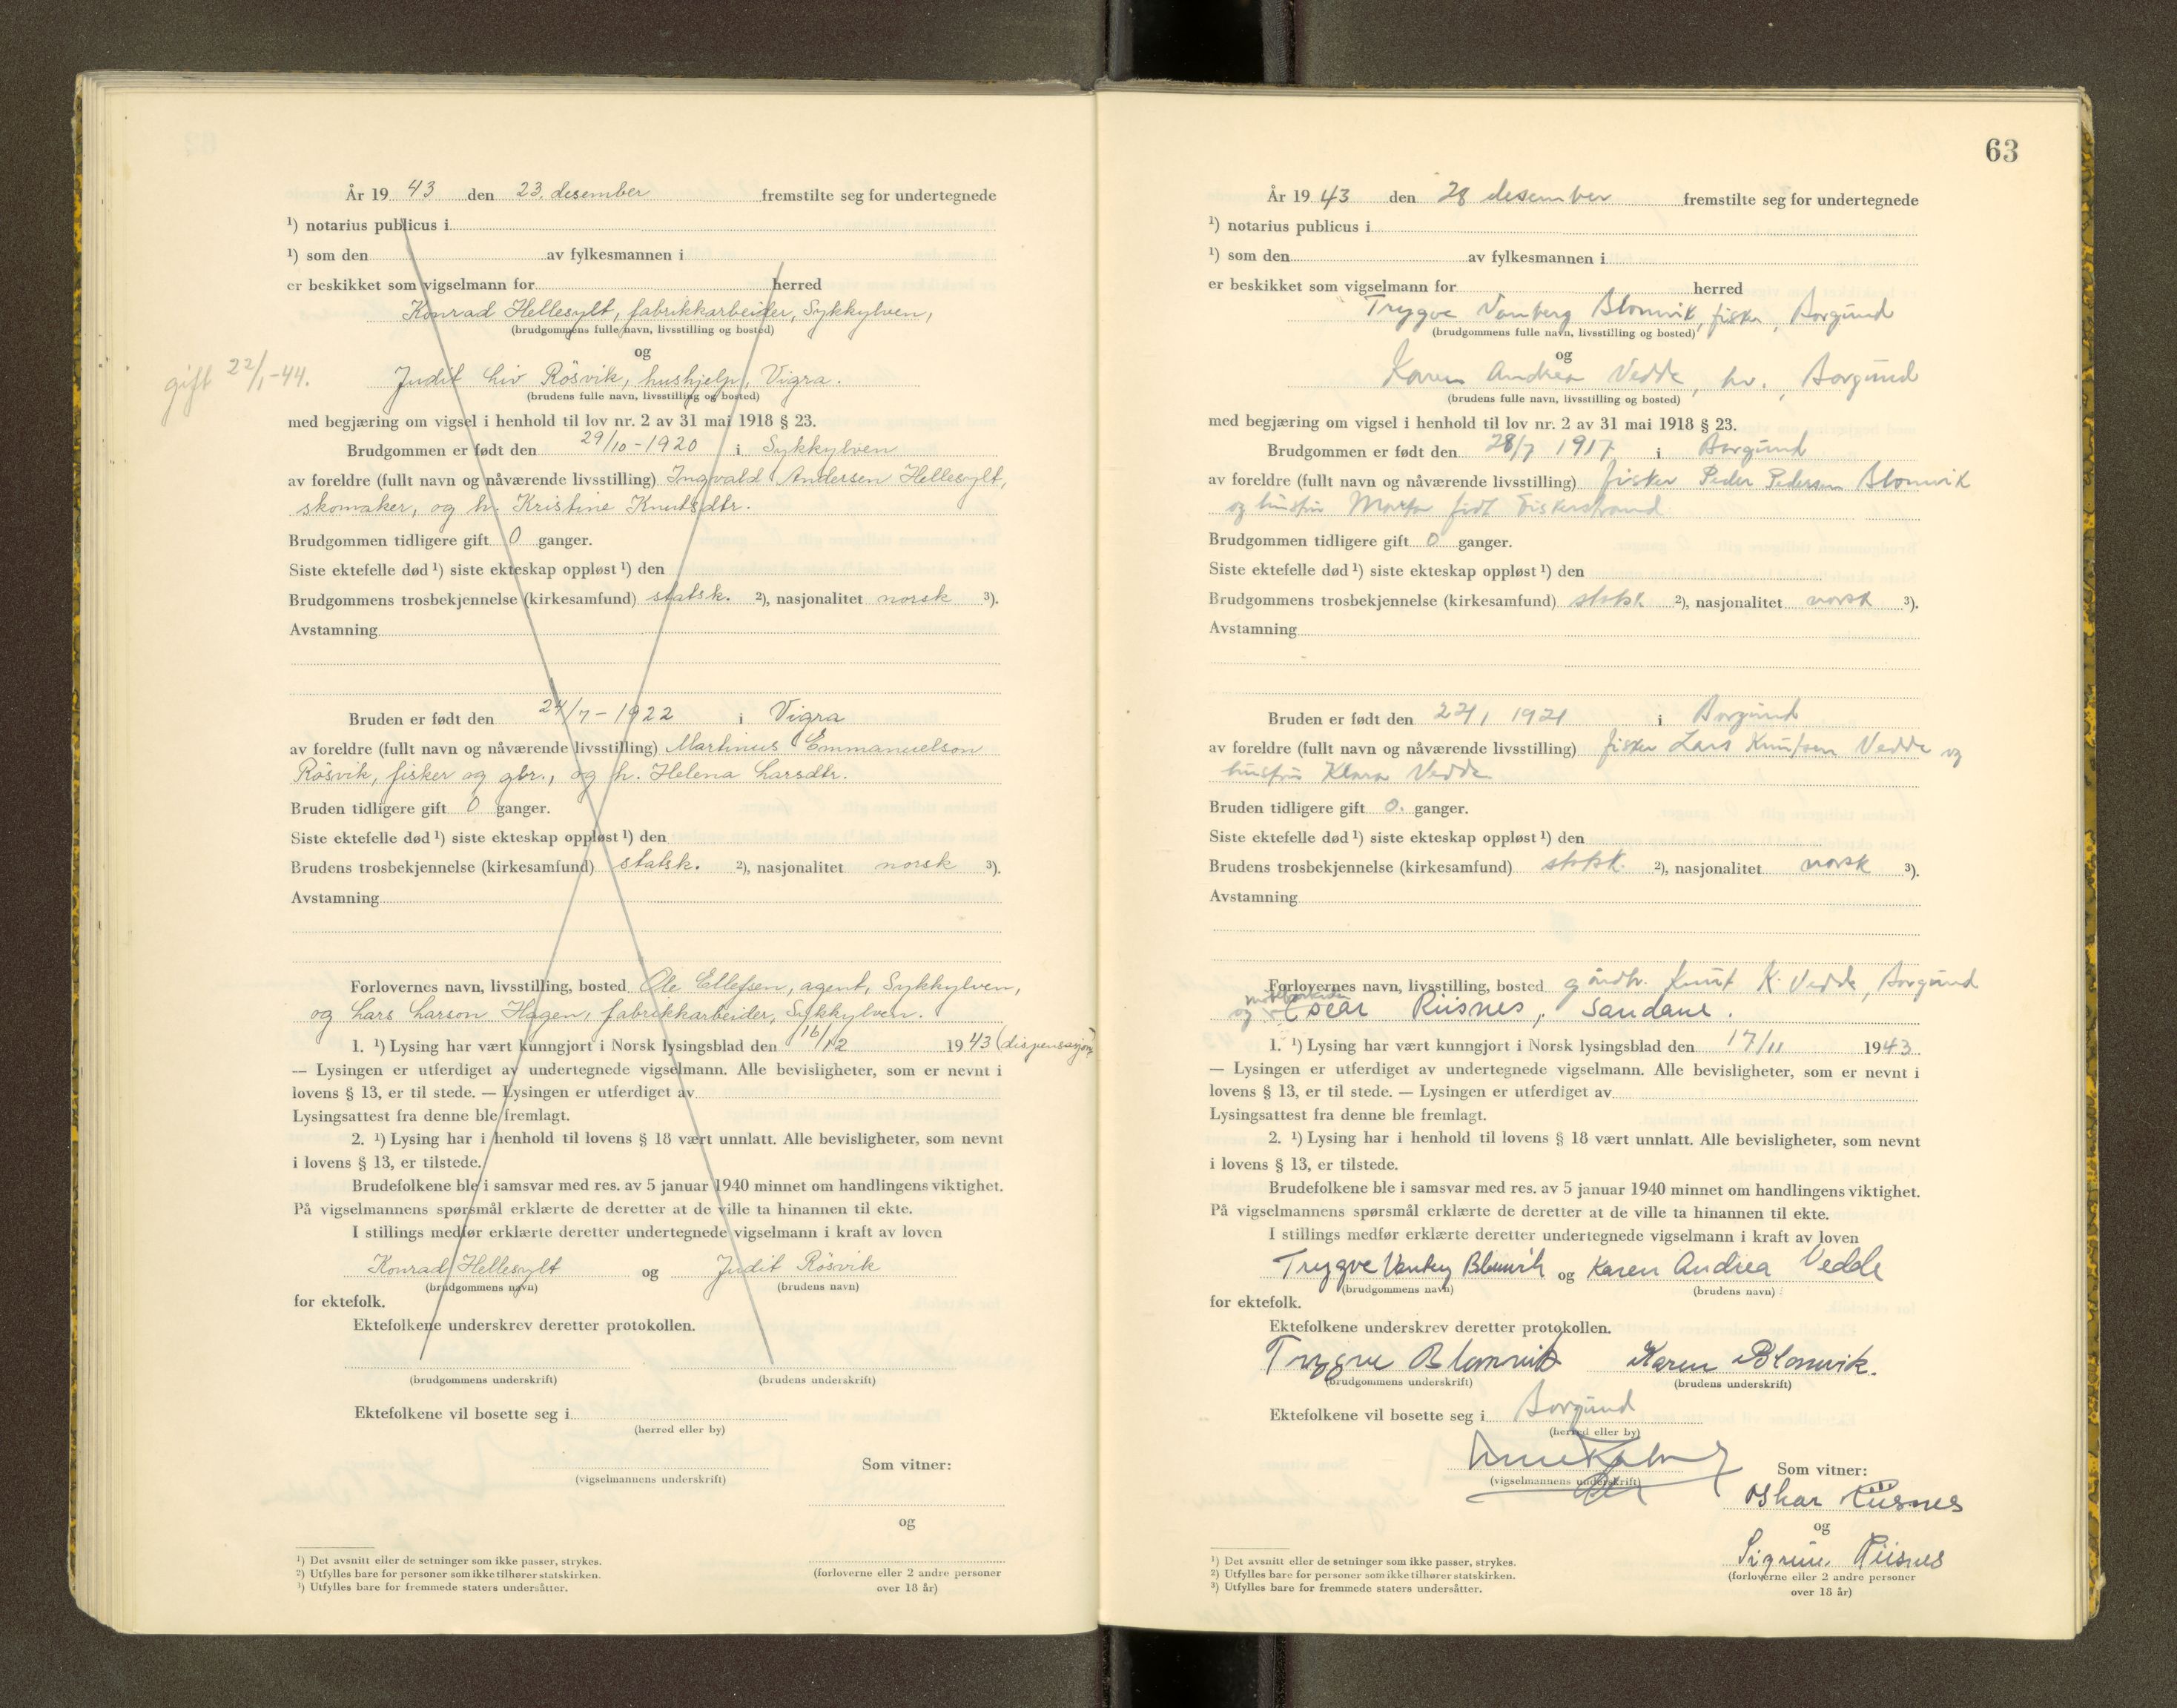 År 19 43 den 23. desember fremstilte seg for undertegnede
¹) notarius publicus i
¹) som den av fylkesmannen i
er beskikket som vigselmann for herred
Konrad Hellesylt, fabrikkarbeider, Sykkylven,
(brudgommens fulle navn, livsstilling og bosted)
og
gift 22/1-44.
Judit Liv Rösvik, hushjelp, Vigra.
(brudens fulle navn, livsstilling og bosted)
med begjæring om vigsel i henhold til lov nr. 2 av 31 mai 1918 § 23.
Brudgommen er født den 29/10-1920 i Sykkylven
av foreldre (fullt navn og nåværende livsstilling) Ingvald Andersen Hellesylt,
skomaker, og h. Kristine Knutsdtr.
Brudgommen tidligere gift 0 ganger.
Siste ektefelle død ¹) siste ekteskap oppløst ¹) den
Brudgommens trosbekjennelse (kirkesamfund) statsk. ²), nasjonalitet norsk ³).
Avstamning
Bruden er født den 24/7-1922 i Vigra
av foreldre (fullt navn og nåværende livsstilling) Martinus Emmanuelson
Rösvik, fisker og gbr., og h. Helena Larsdtr.
Bruden tidligere gift 0 ganger.
Siste ektefelle død ¹) siste ekteskap oppløst ¹) den
Brudens trosbekjennelse (kirkesamfund) statsk. ²), nasjonalitet norsk ³).
Avstamning
Forlovernes navn, livsstilling, bosted Ole Ellefsen, agent, Sykkylven,
og Lars Larson Hagen, fabrikkarbeider, Sykkylven.
1. ¹) Lysing har vært kunngjort i Norsk lysingsblad den 16/12 19 43 (dispensasjon)
— Lysingen er utferdiget av undertegnede vigselmann. Alle bevisligheter, som er nevnt i
lovens § 13, er til stede. — Lysingen er utferdiget av
Lysingsattest fra denne ble fremlagt.
2. ¹) Lysing har i henhold til lovens § 18 vært unnlatt. Alle bevisligheter, som nevnt
i lovens § 13, er tilstede.
Brudefolkene ble i samsvar med res. av 5 januar 1940 minnet om handlingens viktighet.
På vigselmannens spørsmål erklærte de deretter at de ville ta hinannen til ekte.
I stillings medfør erklærte deretter undertegnede vigselmann i kraft av loven
Konrad Hellesylt og Judit Rösvik
(brudgommens navn) (brudens navn)
for ektefolk.
Ektefolkene underskrev deretter protokollen.
(brudgommens underskrift) (brudens underskrift)
Ektefolkene vil bosette seg i
(herred eller by)
Som vitner:
(vigselmannens underskrift)
og
¹) Det avsnitt eller de setninger som ikke passer, strykes.
²) Utfylles bare for personer som ikke tilhører statskirken.
³) Utfylles bare for fremmede staters undersåtter.
(forloverne eller 2 andre personer
over 18 år)
63
År 19 43 den 28 desember fremstilte seg for undertegnede
¹) notarius publicus i
¹) som den av fylkesmannen i
er beskikket som vigselmann for herred
Trygve Vanberg Blomvik, fisker, Borgund
(brudgommens fulle navn, livsstilling og bosted)
og
Karen Andrea Vedde, hv., Borgund
(brudens fulle navn, livsstilling og bosted)
med begjæring om vigsel i henhold til lov nr. 2 av 31 mai 1918 § 23.
Brudgommen er født den 28/7 1917 i Borgund
av foreldre (fullt navn og nåværende livsstilling) fisker Peder Pedersen Blomvik
og hustru Marta født Fiskerstrand
Brudgommen tidligere gift 0 ganger.
Siste ektefelle død ¹) siste ekteskap oppløst ¹) den
Brudgommens trosbekjennelse (kirkesamfund) statsk ²), nasjonalitet norsk ³).
Avstamning
Bruden er født den 1921 i Borgund
av foreldre (fullt navn og nåværende livsstilling) fisker Lars Knutsen Vedde og
hustru Klara Vedde
Bruden tidligere gift 0. ganger.
Siste ektefelle død ¹) siste ekteskap oppløst ¹) den
Brudens trosbekjennelse (kirkesamfund) statsk. ²), nasjonalitet norsk ³).
Avstamning
Forlovernes navn, livsstilling, bosted gårdbr. Knut K. Vedde, Borgund
og Oscar Riisnes, Sandane.
1. ¹) Lysing har vært kunngjort i Norsk lysingsblad den 17/11 19 43
— Lysingen er utferdiget av undertegnede vigselmann. Alle bevisligheter, som er nevnt i
lovens § 13, er til stede. — Lysingen er utferdiget av
Lysingsattest fra denne ble fremlagt.
2. ¹) Lysing har i henhold til lovens § 18 vært unnlatt. Alle bevisligheter, som nevnt
i lovens § 13, er tilstede.
Brudefolkene ble i samsvar med res. av 5 januar 1940 minnet om handlingens viktighet.
På vigselmannens spørsmål erklærte de deretter at de ville ta hinannen til ekte.
I stillings medfør erklærte deretter undertegnede vigselmann i kraft av loven
Trygve Vanberg Blomvik og Karen Andrea Vedde
(brudgommens navn) (brudens navn)
for ektefolk.
Ektefolkene underskrev deretter protokollen.
Trygve Blomvik Karen Blomvik.
(brudgommens underskrift) (brudens underskrift)
Ektefolkene vil bosette seg i Borgund
(herred eller by)
Som vitner:
(vigselmannens underskrift)
Oskar Riisnes
og
Sigrun Riisnes
¹) Det avsnitt eller de setninger som ikke passer, strykes.
²) Utfylles bare for personer som ikke tilhører statskirken.
³) Utfylles bare for fremmede staters undersåtter.
(forloverne eller 2 andre personer
over 18 år)